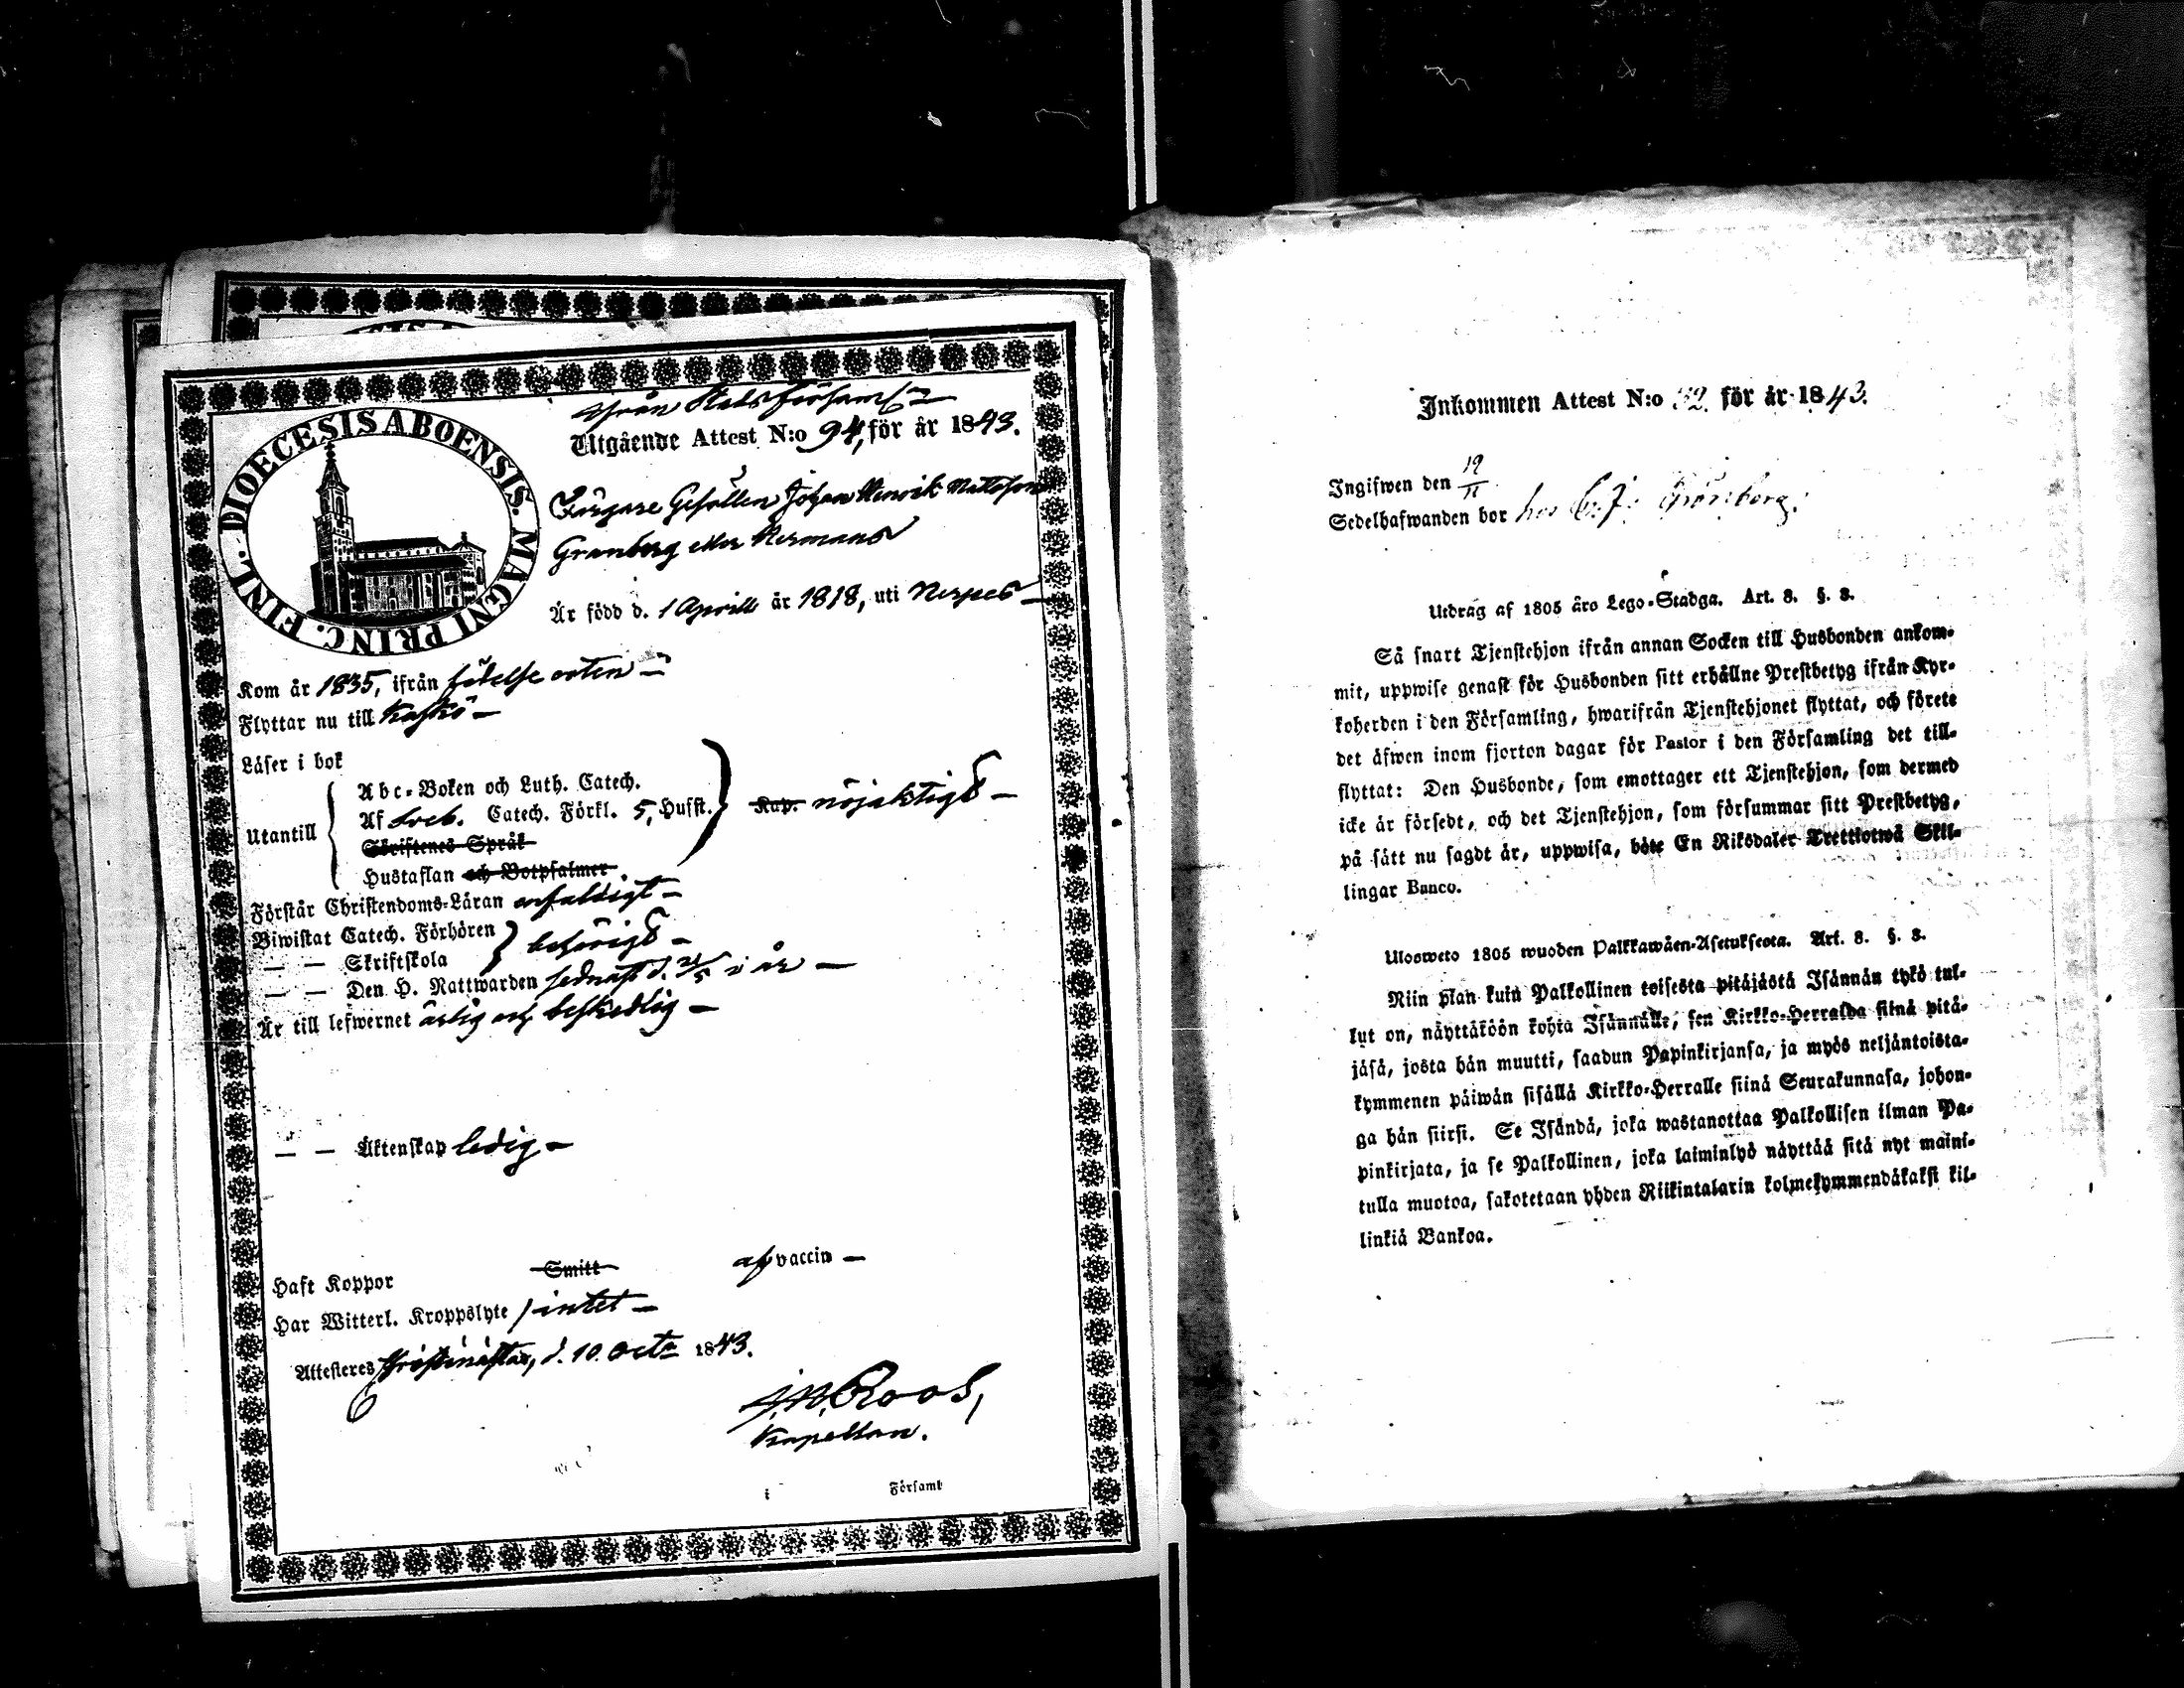 DIOECESIS ABOENSIS. MAGNI PRINC. FINL.
ifrån Stads församl:
Utgående Attest N:o 94, för år 1843.
Färgare Gesällen Johan Henrik Mattsson
Granberg eller Hermans
Är född d. 1 Aprill år 1818, uti Nerpes
Kom år 1835, ifrån födelse orten –
Flyttar nu till Kaskö –
Läser i bok
Abc-Boken och Luth. Catech.
Utantill Af Sveb. Catech. Förkl. 5, Hufst. Kap. nöjaktigt –
Skriftenes Språk
Hustaflan och Botpsalmer.
Förstår Christendoms-Läran enfaldigt –
Biwistat Catech. Förhören
— — Skriftskola behörigt –
— — Den H. Nattwarden sednast d. 21/5 i år —
Är till lefwernet ärlig och beskedlig –
— — Äktenskap ledig –
Haft Koppor Smitt af vaccin —
Har Witterl. Kroppslyte intet –
Attesteres Kristinæstad, d. 10 Octr 1843.
Roos,
Kapellan.
i Församl
Inkommen Attest N:o 32. för år 1843.
Ingifwen den 19/11
Sedelhafwanden bor hos C. J. Grönberg.
Utdrag af 1805 års Lego-Stadga. Art. 8. §. 8.
Så snart Tjenstehjon ifrån annan Socken till Husbonden ankom-
mit, uppwise genast för Husbonden sitt erhållne Prestbetyg ifrån Kyr-
koherden i den Församling, hwarifrån Tjenstehjonet flyttat, och förete
det äfwen inom fjorton dagar för Pastor i den Församling det till-
flyttat: Den Husbonde, som emottager ett Tjenstehjon, som dermed
icke är försedt, och det Tjenstehjon, som försummar sitt Prestbetyg,
på sätt nu sagdt är, uppwisa, böte En Riksdaler Trettiotwå Skil-
lingar Banco.
Ulosweto 1805 wuoden Palkkawäen-Asetuksesta. Art. 8. §. 8.
Niin pian kuin Palkollinen toisesta pitäjästä Isännän tykö tul-
lut on, näyttäköön kohta Isännälle, sen Kirkko-Herralda siinä pitä-
jäsä, josta hän muutti, saadun Papinkirjansa, ja myös neljäntoista-
kymmenen päiwän sisällä Kirkko-Herralle siinä Seurakunnasa, johon-
ga hän siirsi. Se Isändä, joka wastanottaa Palkollisen ilman Pa-
pinkirjata, ja se Palkollinen, joka laiminlyö näyttää sitä nyt maini-
tulla muotoa, sakotetaan yhden Riikintalarin kolmekymmendäkaksi kil-
linkiä Bankoa.